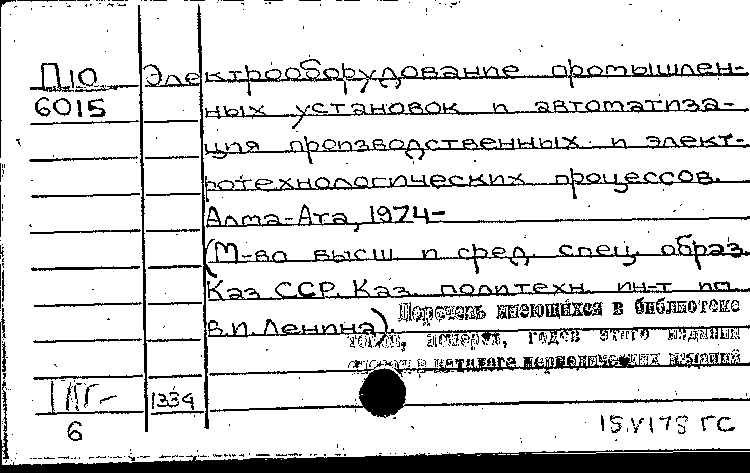 П10 Электрооборудование промышлен-
6015 ных установок и автоматиза-
ция производственных и элект-
ротехнологических процессов.
Алма-Ата, 1974-
(М-во высш и сред. спец. образ.
Каз ССР. Каз. политехн. ин-т им.
В.И. Ленина).
Перечень имеющихся в библиотеке
томов, номеров, годов этого издания
смотри в каталоге периодических изданий
1334
6
15.VI 78 ГС